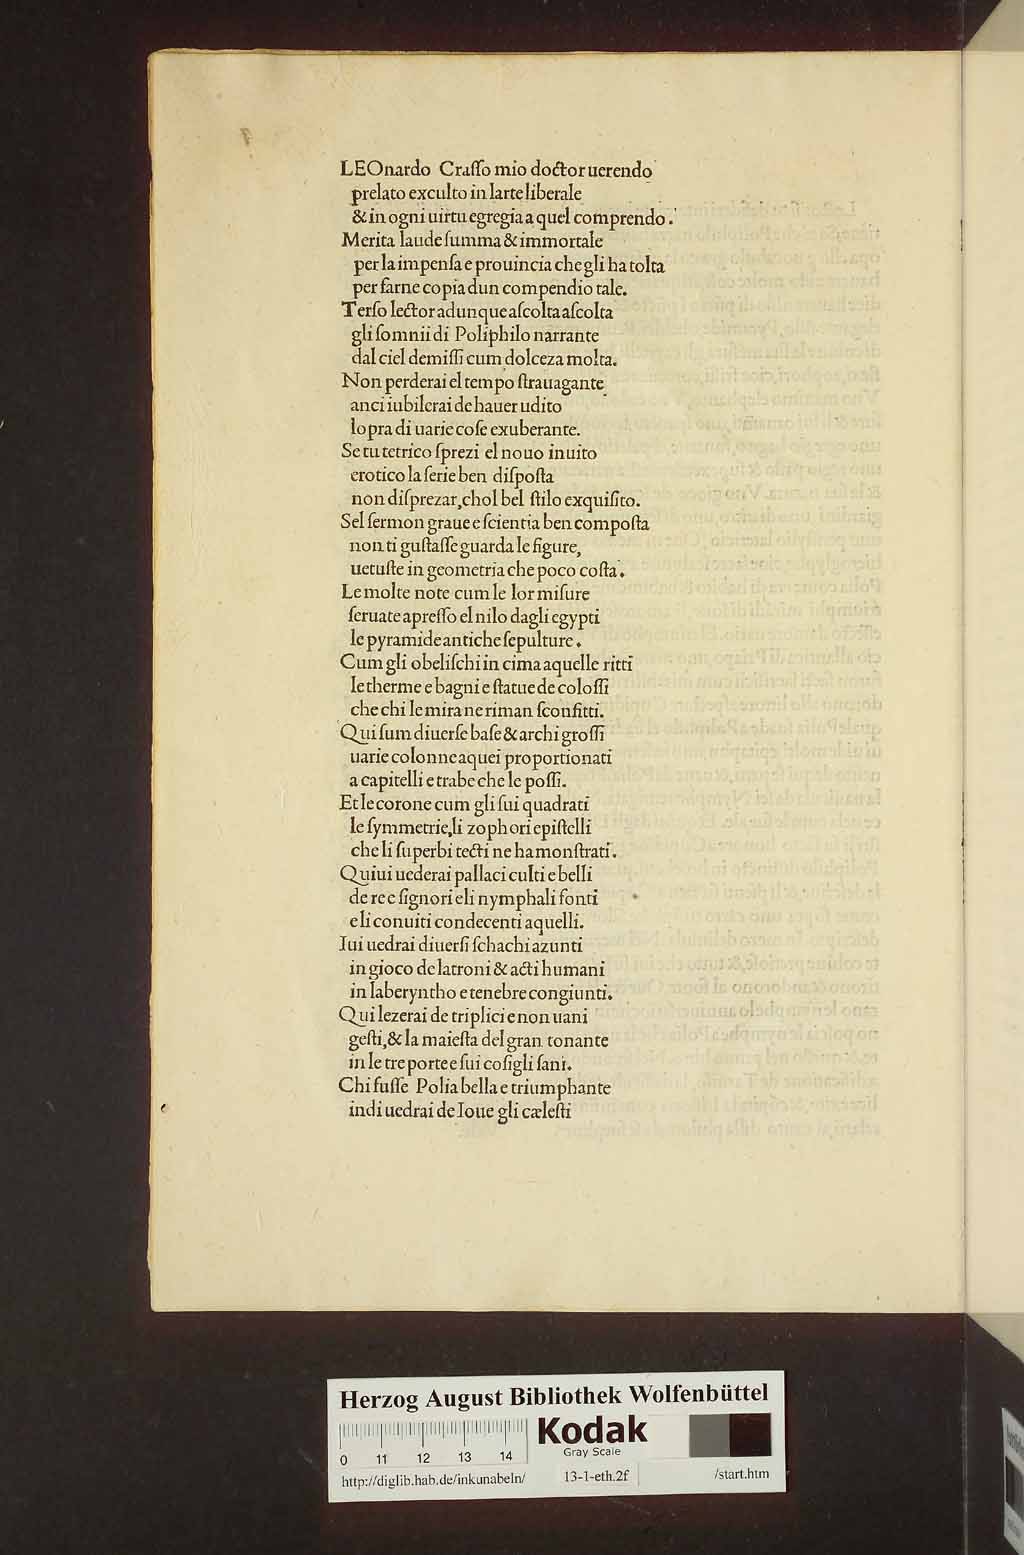 LEOnardo Craſſo mio doctor uerendo
prelato exculto in larte liberale
& in ogni uirtu egregia a quel comprendo.
Merita laude ſumma & immortale
per la impenſa e prouincia che gli ha tolta
per farne copia dun compendio tale.
Terſo lector adunque aſcolta aſcolta
gli ſomnii di Poliphilo narrante
dal ciel demiſſi cum dolceza molta.
Non perderai el tempo ſtrauagante
anci iubilerai de hauer udito
lopra di uarie coſe exuberante.
Se tu tetrico ſprezi el nouo inuito
erotico la ſerie ben diſpoſta
non diſprezar, chol bel ſtilo exquiſito.
Sel ſermon graue e ſcientia ben compoſta
non ti guſtaſſe guarda le figure,
uetuſte in geometria che poco coſta.
Le molte note cum le lor miſure
ſeruate apreſſo el nilo dagli egypti
le pyramide antiche ſepulture.
Cum gli obeliſchi in cima aquelle ritti
le therme e bagni e ſtatue de coloſſi
che chi le mira ne riman ſconfitti.
Qui ſum diuerſe baſe & archi groſſi
uarie colonne aquei proportionati
a capitelli e trabe che le poſſi.
Et le corone cum gli ſui quadrati
le ſymmetrie, li zophori epiſtelli
che li ſuperbi tecti ne ha monſtrati.
Quiui uederai pallaci culti e belli
de re e ſignori e li nymphali fonti
e li conuiti condecenti aquelli.
Iui uedrai diuerſi ſchachi azunti
in gioco de latroni & acti humani
in laberyntho e tenebre congiunti.
Qui lezerai de triplici e non uani
geſti, & la maieſta del gran tonante
in le tre porte e ſui coſigli ſani.
Chi fuſſe Polia bella e triumphante
indi uedrai de Ioue gli cæleſti
Herzog August Bibliothek Wolfenbüttel
Kodak
Gray Scale
0 11 12 13 14
http://diglib.hab.de/inkunabeln/ 13-1-eth.2f /start.htm